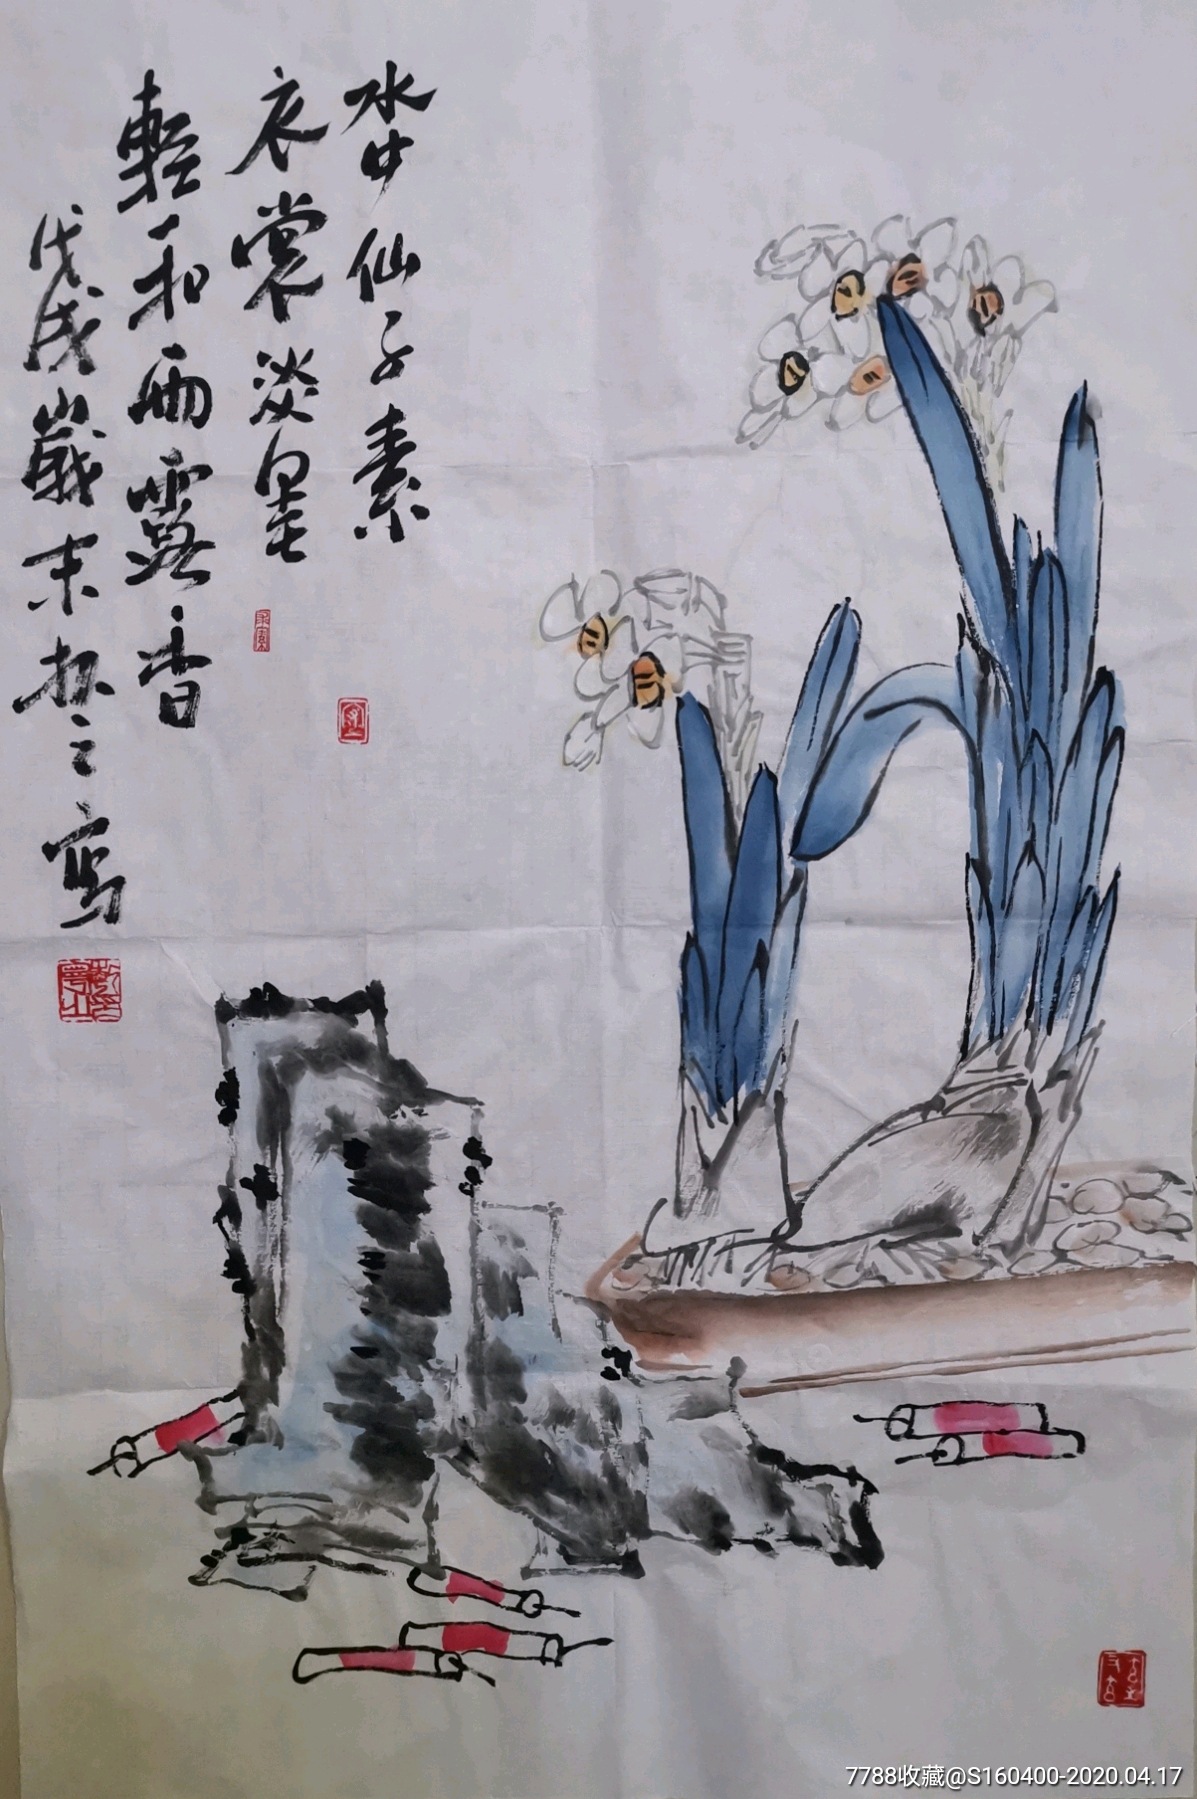 水中仙子素
衣裳淡墨
輕和雨露香
戊戌歲末寫
7788收藏@S160400-2020.04.17